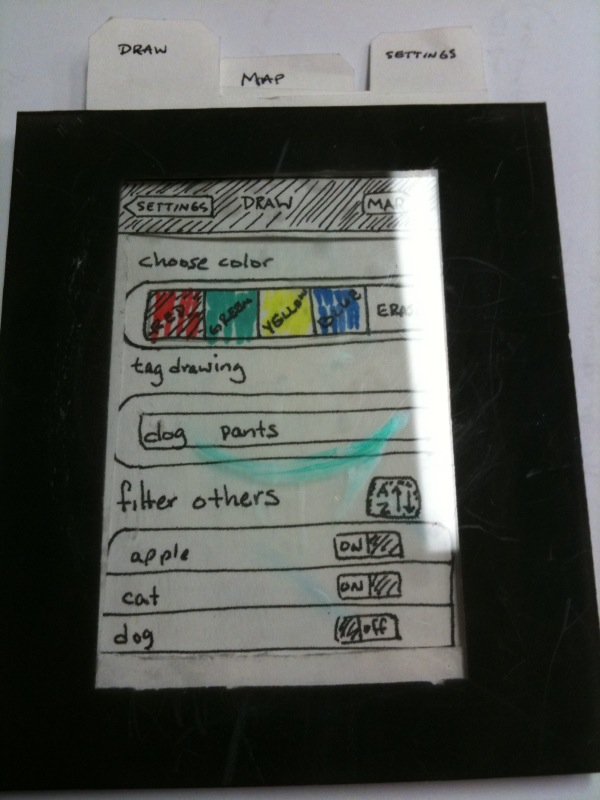 DRAW
MAP
SETTINGS
SETTINGS DRAW MAP
choose color
RED GREEN YELLOW BLUE ERAS
tag drawing
dog pants
filter others
A Z
apple ON
cat ON
dog off